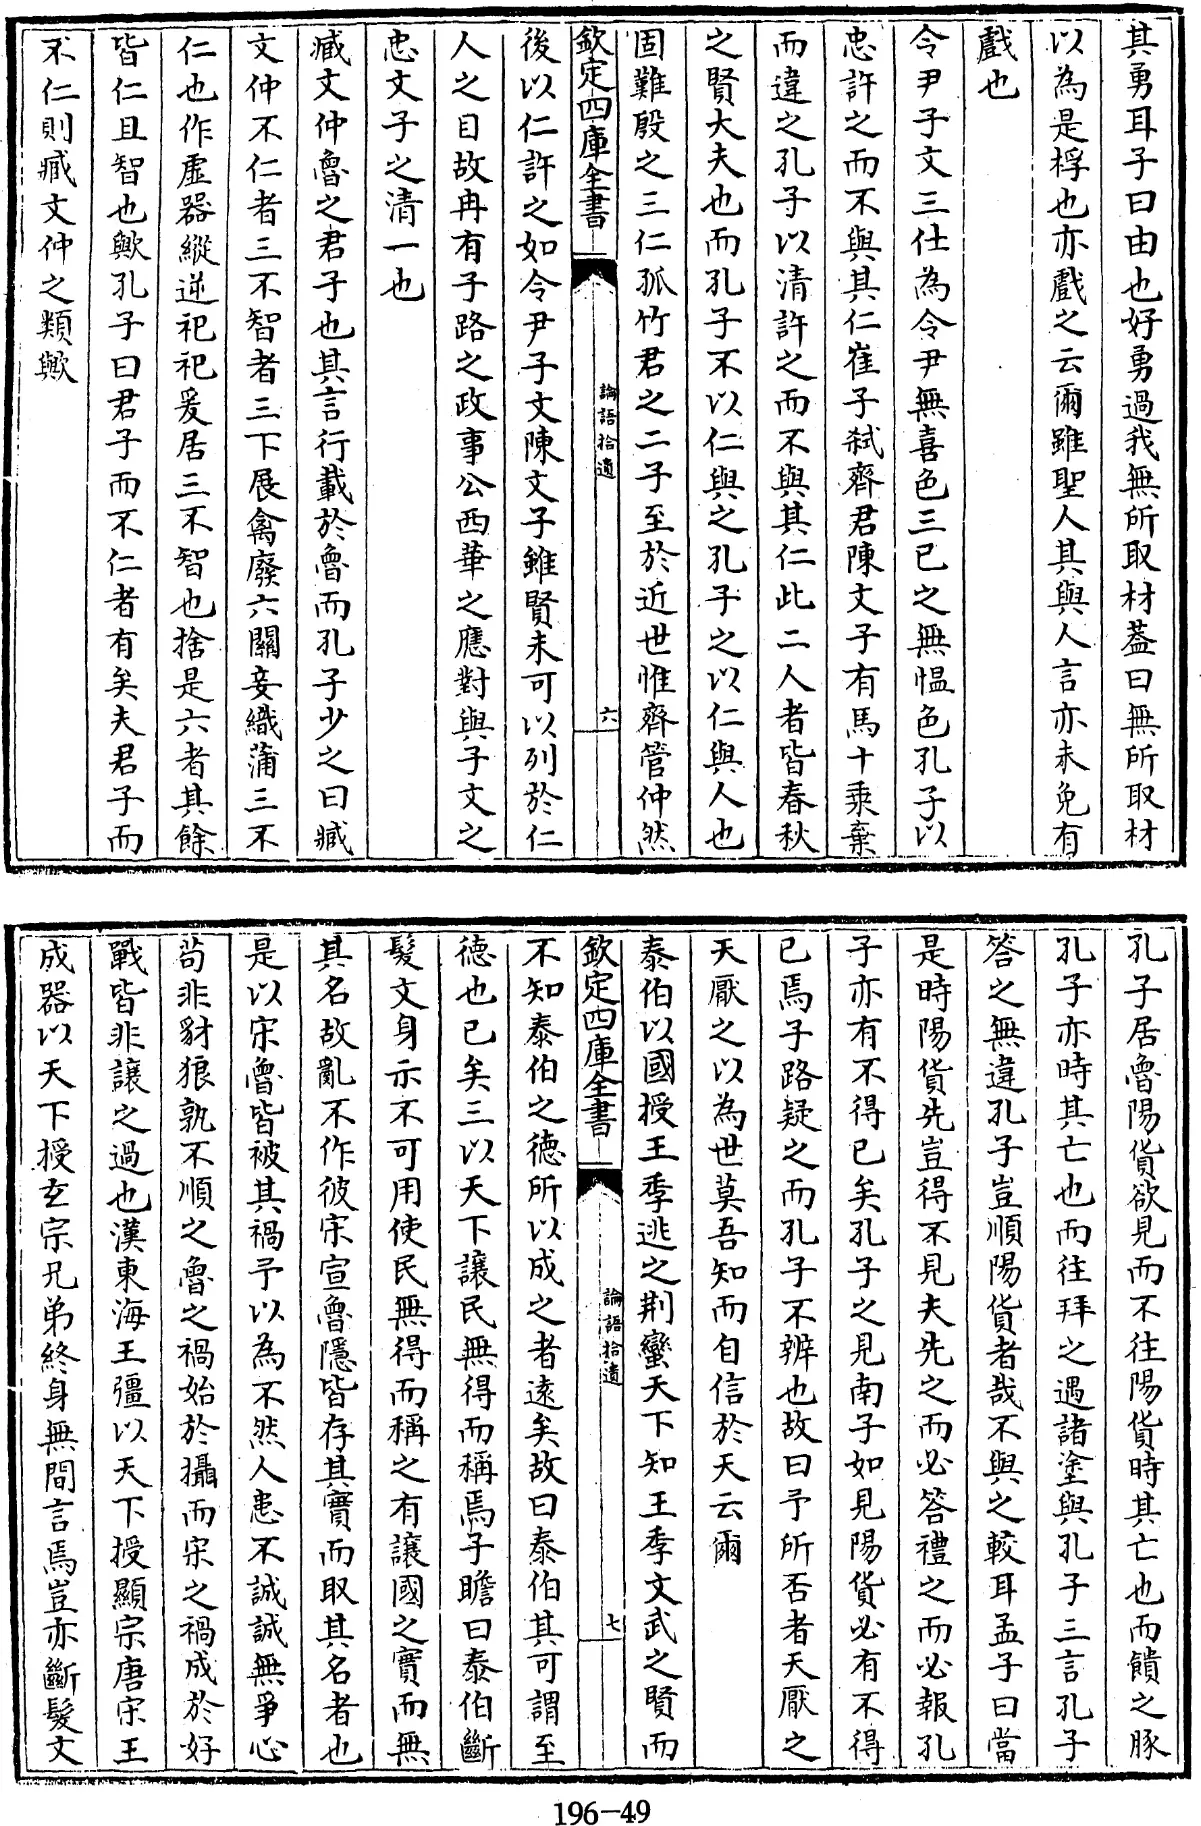 其勇耳子曰由也好勇過我無所取材葢曰無所取材
以為是桴也亦戲之云爾雖聖人其與人言亦未免有
戲也
令尹子文三仕為令尹無喜色三已之無愠色孔子以
忠許之而不與其仁崔子弑齊君陳文子有馬十乘棄
而違之孔子以清許之而不與其仁此二人者皆春秋
之賢大夫也而孔子不以仁與之孔子之以仁與人也
固難殷之三仁孤竹君之二子至於近世惟齊管仲然
欽定四庫全書
論語拾遺
六
後以仁許之如令尹子文陳文子雖賢未可以列於仁
人之目故冉有子路之政事公西華之應對與子文之
忠文子之清一也
臧文仲魯之君子也其言行載於魯而孔子少之曰臧
文仲不仁者三不智者三下展禽廢六關妾織蒲三不
仁也作虛器縱逆祀祀爰居三不智也捨是六者其餘
皆仁且智也歟孔子曰君子而不仁者有矣夫君子而
不仁則臧文仲之類歟
孔子居魯陽貨欲見而不往陽貨時其亡也而饋之豚
孔子亦時其亡也而往拜之遇諸塗與孔子三言孔子
答之無違孔子豈順陽貨者哉不與之較耳孟子曰當
是時陽貨先豈得不見夫先之而必答禮之而必報孔
子亦有不得已矣孔子之見南子如見陽貨必有不得
已焉子路疑之而孔子不辨也故曰予所否者天厭之
天厭之以為世莫吾知而自信於天云爾
泰伯以國授王季逃之荆蠻天下知王季文武之賢而
欽定四庫全書
論語拾遺
七
不知泰伯之德所以成之者遠矣故曰泰伯其可謂至
德也已矣三以天下讓民無得而稱焉子瞻曰泰伯斷
髮文身示不可用使民無得而稱之有讓國之實而無
其名故亂不作彼宋宣魯隱皆存其實而取其名者也
是以宋魯皆被其禍予以為不然人患不誠誠無爭心
苟非豺狼孰不順之魯之禍始於攝而宋之禍成於好
戰皆非讓之過也漢東海王彊以天下授顯宗唐宋王
成器以天下授玄宗兄弟終身無間言焉豈亦斷髮文
196-49